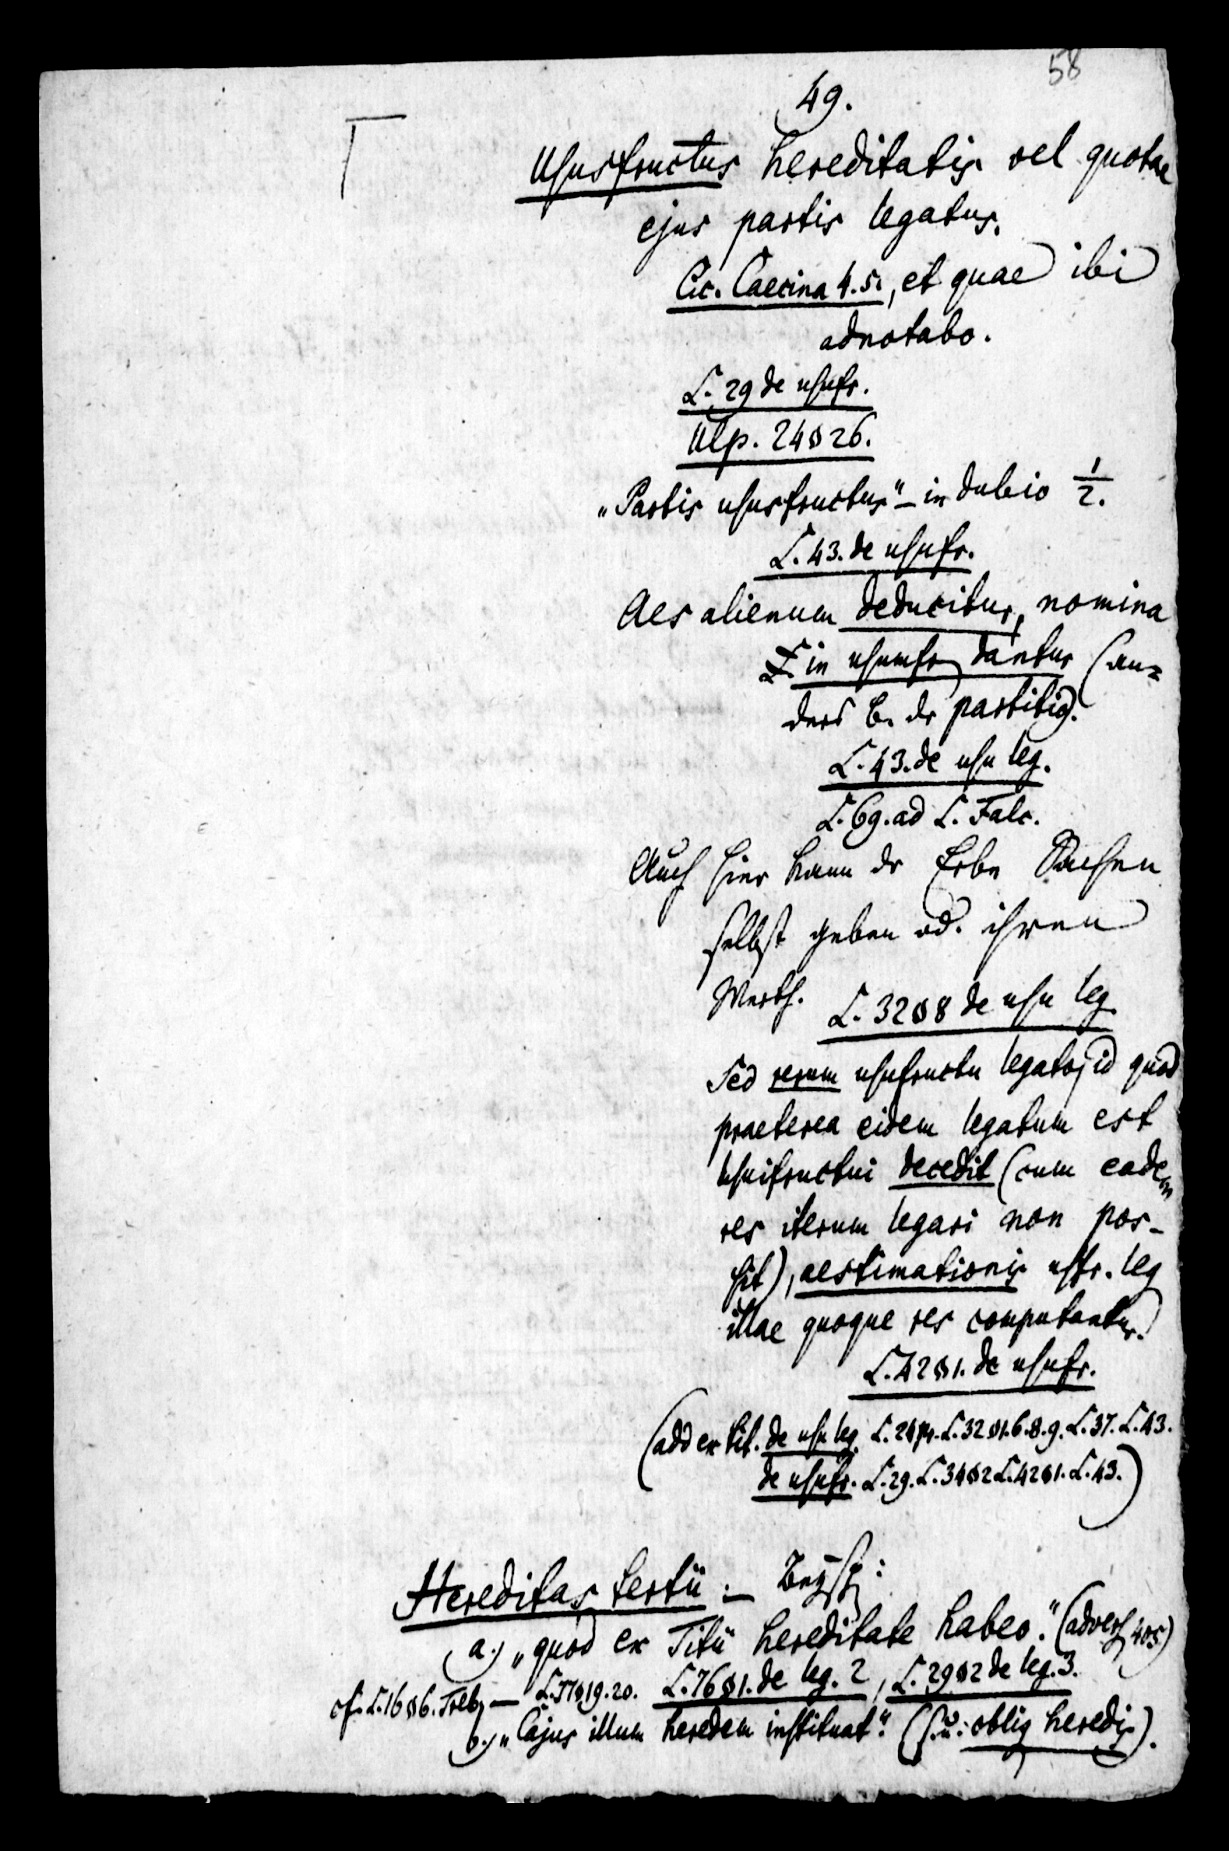 58
49.
Ususfructus hereditatis vel quotae
ejus partis legatus.
Cic. Caecina 4.5., et quae ibi
adnotabo.
L. 29 de usufr.
Ulp. 24 § 26.
„Partis ususfructus“ – in dubio 1/2.
L. 43. de usufr.
Aes alienum deducitur, nomina
in usumfr dantur (an=
ders b. dr partitio).
L. 43. de usu leg.
L. 69. ad L. Falc.
Auch hier kann dr Erbe Sachen
selbst geben od. ihren
Werth. L. 32 § 8 de usu leg
Sed rerum usufructu legato, id quod
praeterea eidem legatum est
usuifructui decedit (cum eadem
res iterum legari non pos-
sit), aestimationis usfr. leg
illae quoque res computantur.
L. 42 § 1. de usufr.
(add ex tit. de usu leg. L. 24 pr. L. 32 § 1. 6. 8. 9. L. 37. L. 43.
de usufr. L. 29. L. 34 § 2 L. 42 § 1. L. 43.)
Hereditas tertii. –
a.) „quod ex Titii hereditate habeo.“ (advers 405)
cf. L. 16 § 6. Treb – L. 19. 20. L. 76 § 1. de leg. 2, L. 29 § 2 de leg. 3.
b.) „Cajus illum heredem instituat“. (s. u: oblig heredis).